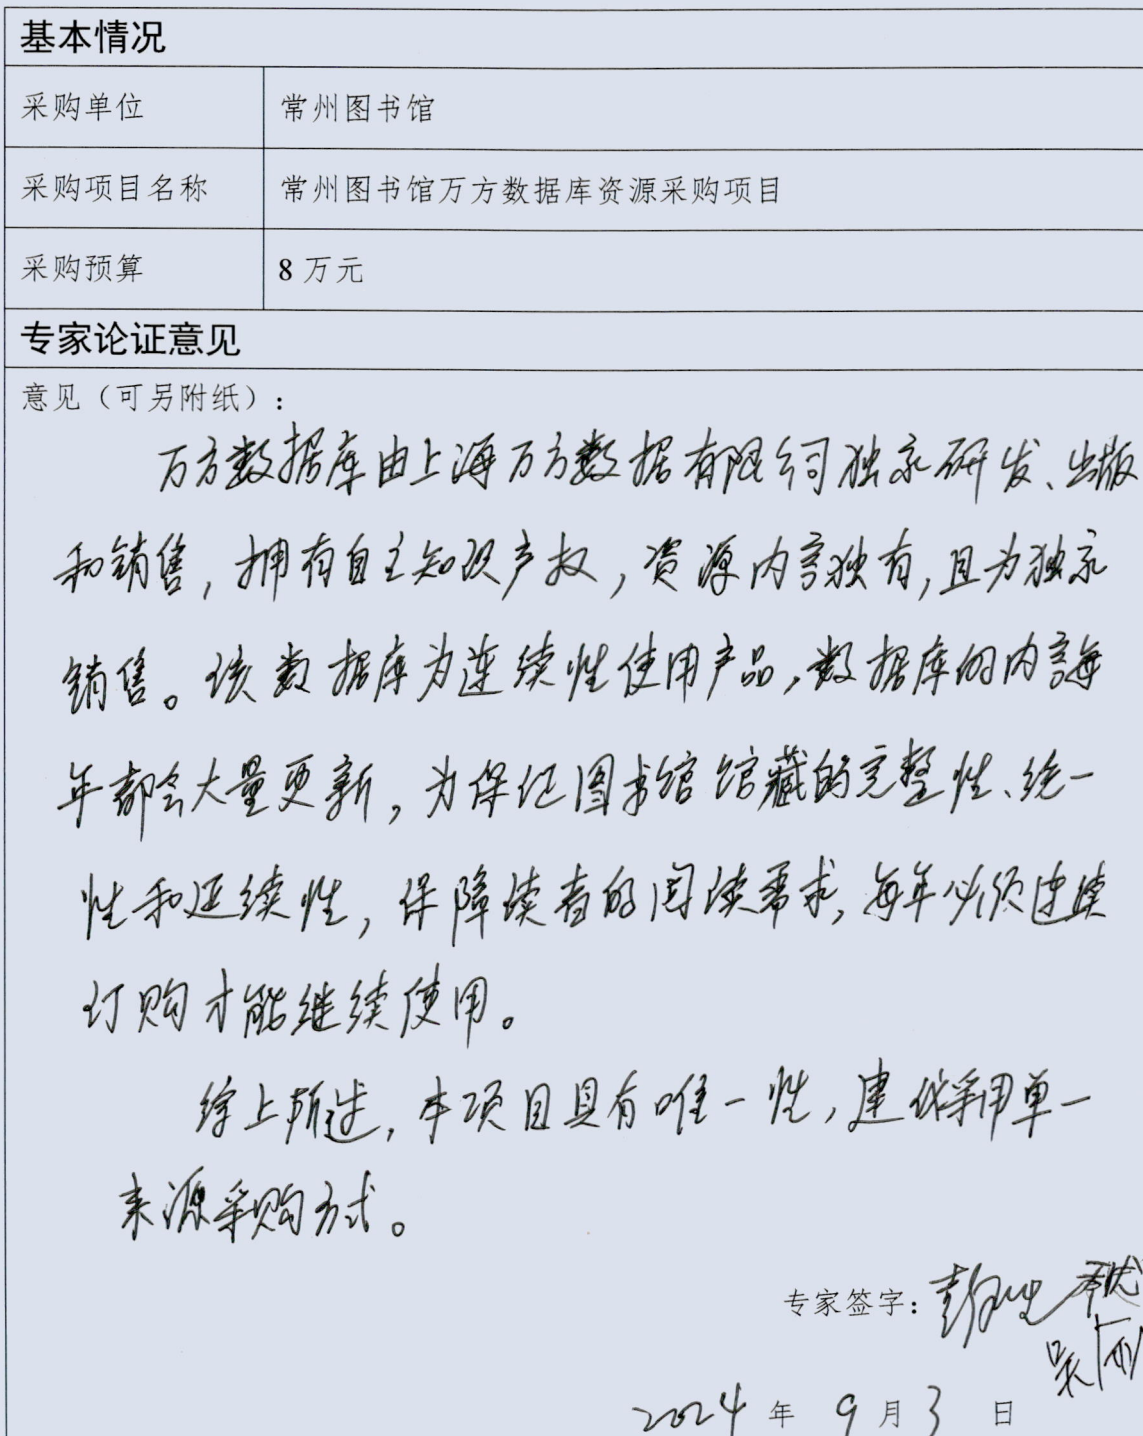 基本情况
采购单位 常州图书馆
采购项目名称 常州图书馆万方数据库资源采购项目
采购预算 8 万元
专家论证意见
意见（可另附纸）：
万方数据库由上海万方数据有限公司独家研发、出版
和销售，拥有自主知识产权，资源内容独有，且为独家
销售。该数据库为连续性使用产品，数据库的内容每
年都会大量更新，为保证图书馆馆藏的完整性、统一
性和延续性，保障读者的阅读需求，每年必须连续
订购才能继续使用。
综上所述，本项目具有唯一性，建议采用单一
来源采购方式。
专家签字：
2024 年 9 月 3 日